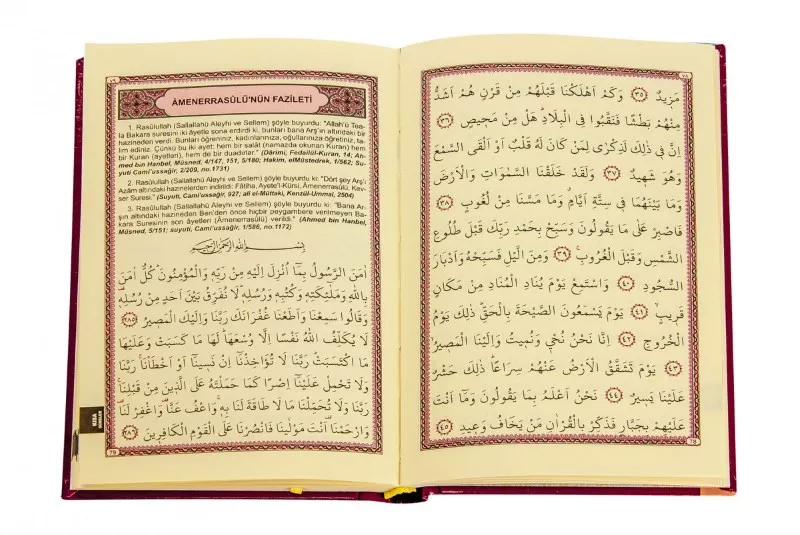 ٧٨
مَزِيدٌ ﴿٣٥﴾ وَكَمْ اَهْلَكْنَا قَبْلَهُمْ مِنْ قَرْنٍ هُمْ اَشَدُّ
مِنْهُمْ بَطْشًا فَنَقَّبُوا فِي الْبِلَادِ هَلْ مِنْ مَحِيصٍ ﴿٣٦﴾
اِنَّ فِي ذٰلِكَ لَذِكْرٰى لِمَنْ كَانَ لَهُ قَلْبٌ اَوْ اَلْقَى السَّمْعَ
وَهُوَ شَهِيدٌ ﴿٣٧﴾ وَلَقَدْ خَلَقْنَا السَّمٰوَاتِ وَالْاَرْضَ
وَمَا بَيْنَهُمَا فِي سِتَّةِ اَيَّامٍ وَمَا مَسَّنَا مِنْ لُغُوبٍ ﴿٣٨﴾
فَاصْبِرْ عَلٰى مَا يَقُولُونَ وَسَبِّحْ بِحَمْدِ رَبِّكَ قَبْلَ طُلُوعِ
الشَّمْسِ وَقَبْلَ الْغُرُوبِ ﴿٣٩﴾ وَمِنَ الَّيْلِ فَسَبِّحْهُ وَاَدْبَارَ
السُّجُودِ ﴿٤٠﴾ وَاسْتَمِعْ يَوْمَ يُنَادِ الْمُنَادِ مِنْ مَكَانٍ
قَرِيبٍ ﴿٤١﴾ يَوْمَ يَسْمَعُونَ الصَّيْحَةَ بِالْحَقِّ ذٰلِكَ يَوْمُ
الْخُرُوجِ ﴿٤٢﴾ اِنَّا نَحْنُ نُحْيِ وَنُمِيتُ وَاِلَيْنَا الْمَصِيرُ
﴿٤٣﴾ يَوْمَ تَشَقَّقُ الْاَرْضُ عَنْهُمْ سِرَاعًا ذٰلِكَ حَشْرٌ
عَلَيْنَا يَسِيرٌ ﴿٤٤﴾ نَحْنُ اَعْلَمُ بِمَا يَقُولُونَ وَمَا اَنْتَ
عَلَيْهِمْ بِجَبَّارٍ فَذَكِّرْ بِالْقُرْاٰنِ مَنْ يَخَافُ وَعِيدِ ﴿٤٥﴾
78
٧٩
ÂMENERRASÛLÜ'NÜN FAZİLETİ
1. Rasûlullah (Sallallahü Aleyhi ve Sellem) şöyle buyurdu: "Allah'ü Teâ-
la Bakara suresini iki âyetle sona erdirdi ki, bunları bana Arş'ın altındaki bir
hazineden verdi. Bunları öğreniniz, kadınlarınıza, oğullarınıza öğretiniz, ta-
lim ediniz. Çünkü bu iki ayet: hem bir salât (namazda okunan Kuran) hem
bir Kuran (ayetleri), hem de bir duadırlar." (Dârimi, Fedailül-Kuran, 14; Ah-
med bin Hanbel, Müsned, 4/147, 151, 5/180; Hakim, elMüstedrek, 1/562; Su-
yuti Cami'ussağir, 2/209, no.1731)
2. Rasûlullah (Sallallahü Aleyhi ve Sellem) şöyle buyurdu ki: "Dört şey Arş'ı
Azâm altındaki hazinelerden indirildi: Fâtiha, Ayete'l-Kürsi, Âmenerrasûlü, Kev-
ser Suresi." (Suyuti, Cami'ussağir, 927; ali el-Müttaki, Kenzül-Ummal, 2504)
3. Rasûlullah (Sallallahü Aleyhi ve Sellem) şöyle buyurdu ki: "Bana Ar-
şın altındaki hazineden Ben'den önce hiçbir peygambere verilmeyen Ba-
kara Suresinin son âyetleri (Âmenerrasûlü) verildi." (Ahmed bin Hanbel,
Müsned, 5/151; suyuti, Cami'ussağir, 1/586, no.1172)
بِسْمِ اللّٰهِ الرَّحْمٰنِ الرَّحِيمِ
اٰمَنَ الرَّسُولُ بِمَا اُنْزِلَ اِلَيْهِ مِنْ رَبِّهِ وَالْمُؤْمِنُونَ كُلٌّ اٰمَنَ
بِاللّٰهِ وَمَلٰئِكَتِهِ وَكُتُبِهِ وَرُسُلِهِ لَا نُفَرِّقُ بَيْنَ اَحَدٍ مِنْ رُسُلِهِ
وَقَالُوا سَمِعْنَا وَاَطَعْنَا غُفْرَانَكَ رَبَّنَا وَاِلَيْكَ الْمَصِيرُ ﴿٢٨٥﴾
لَا يُكَلِّفُ اللّٰهُ نَفْسًا اِلَّا وُسْعَهَا لَهَا مَا كَسَبَتْ وَعَلَيْهَا
مَا اكْتَسَبَتْ رَبَّنَا لَا تُؤَاخِذْنَا اِنْ نَسِينَا اَوْ اَخْطَاْنَا رَبَّنَا
وَلَا تَحْمِلْ عَلَيْنَا اِصْرًا كَمَا حَمَلْتَهُ عَلَى الَّذِينَ مِنْ قَبْلِنَا
رَبَّنَا وَلَا تُحَمِّلْنَا مَا لَا طَاقَةَ لَنَا بِهِ وَاعْفُ عَنَّا وَاغْفِرْ لَنَا
وَارْحَمْنَا اَنْتَ مَوْلٰينَا فَانْصُرْنَا عَلَى الْقَوْمِ الْكَافِرِينَ ﴿٢٨٦﴾
79
KISA